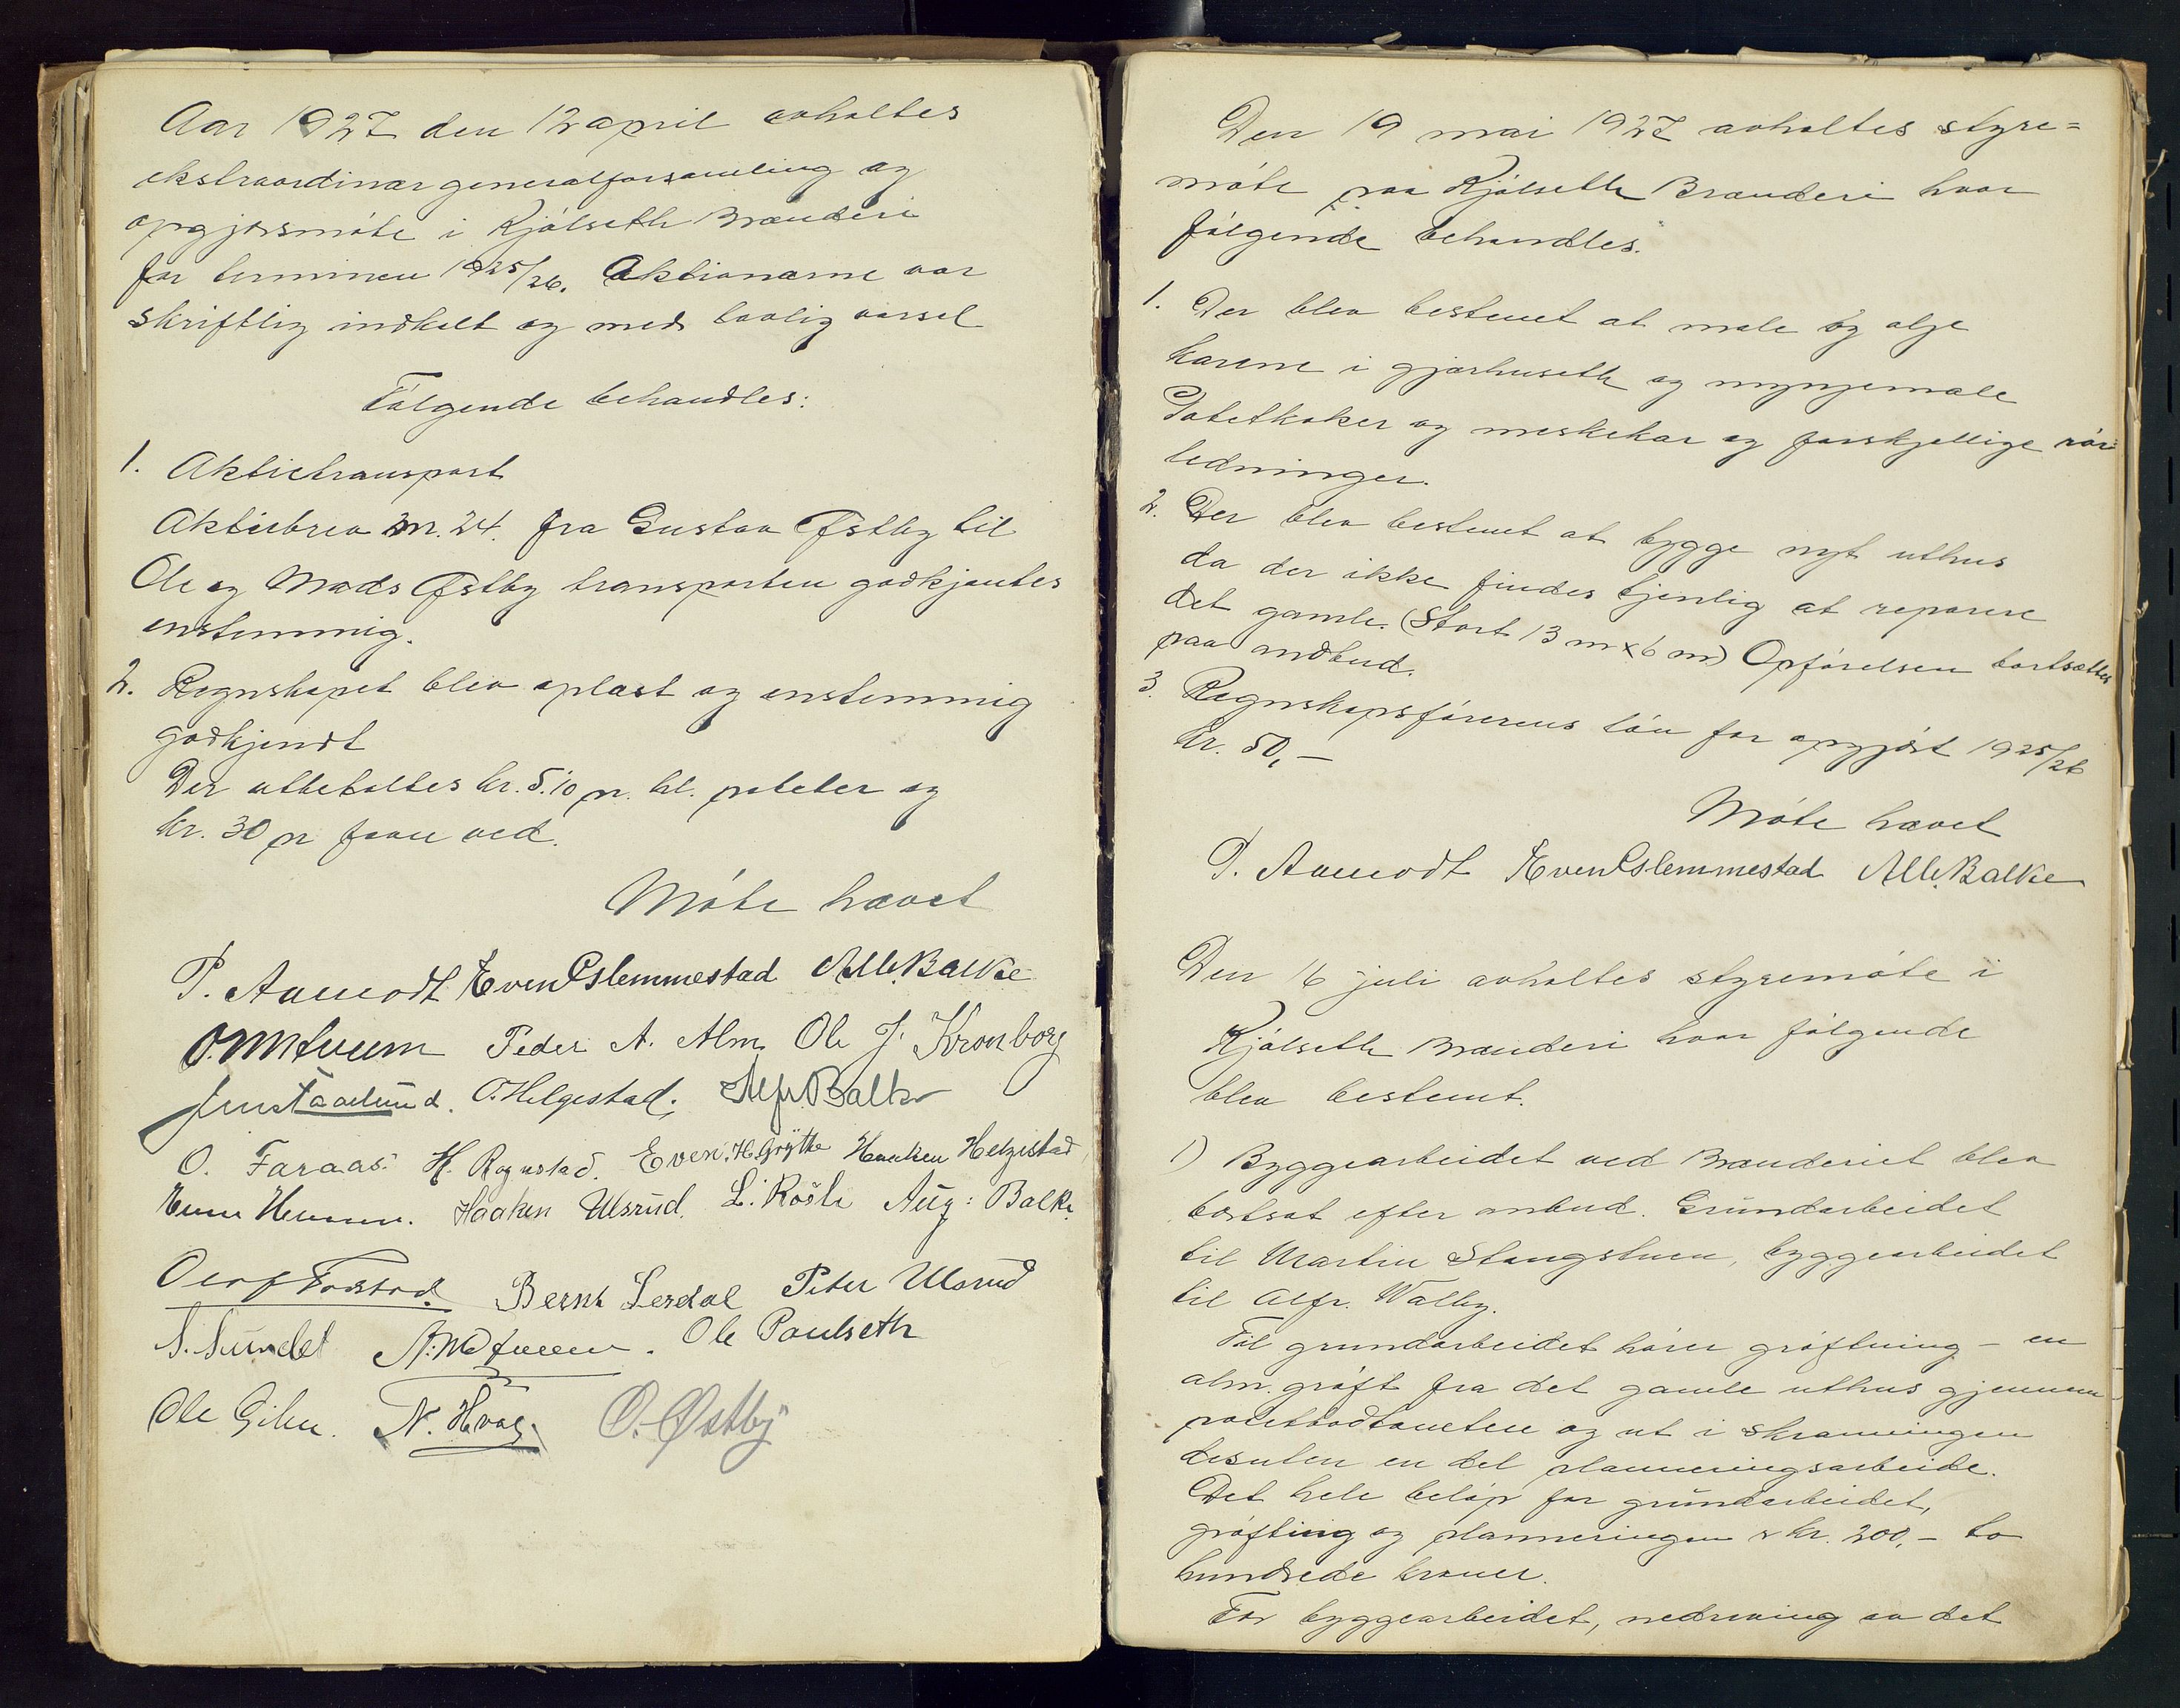 Aar 1927 den 12 april avholtes
ekstraordinær generalforsamling og
opgjørsmøte i Kjølseth Brænderi
for terminen 1925/26. Aktionærne var
skriftlig indkalt og med lovlig varsel
Følgende behandles:
1. Aktietransport
Aktiebrev nr. 24. fra Gustav Østby til
Ole og Mads Østby transporten godkjentes
enstemmig.
2. Regnskapet blev oplæst og enstemmig
godkjendt
Der utbetaltes kr. 5.10 pr. hl. poteter og
kr. 30 pr favn ved.
Møte hævet
P. Aamodt Even Eslemmestad Alb. Balke
Peder A. Alm Ole J. Kronborg
O. Helgestad. Alf. Balke
O. Faraas. H. Rognstad. Even. H. Grythe Haaken Helgestad
Haaken Ulsrud. L. Røste Aug: Balke.
Bernt Lerdal Peter Ulsrud
S. Sundet Ole Paulseth
Ole Gihu. N. Hvag. O. Østby
Den 19 mai 1927 avholtes styre=
møte paa Kjølseth Brænderi hvor
følgende behandles.
1. Der blev bestemt at male og olje
karene i gjærhuseth og mynjemale
Potetkoker og meskekar og forskjellige rør
ledninger.
2. Der blev bestemt at bygge nyt uthus
da der ikke findes tjenlig at reparere
det gamle. (Stort 13 m x 6 m) Opførelsen bortsættes
paa andbud.
3. Regnskapsførerens løn for opgjøst 1925/26
kr. 50,-
Møte hævet
P. Aamodt Even Eslemmestad Alb. Balke
Den 16 juli avholtes styremøte i
Kjølseth Brænderi hvor følgende
blev bestemt.
1) Byggearbeidet ved Brænderiet blev
bortsat efter anbud. Grundarbeidet
til Martin Stangstuen, byggearbeidet
til Alfr. Walby.
Til grundarbeidet hører grøftning - en
alm. grøft fra det gamle uthus gjennem
potetrodtomten og ut i skraaningen
desuten en del planneringsarbeide.
Det hele beløp for grundarbeidet,
grøfting og planneringen er kr. 200,- to
hundrede kroner.
For byggearbeidet, nedrivning av det